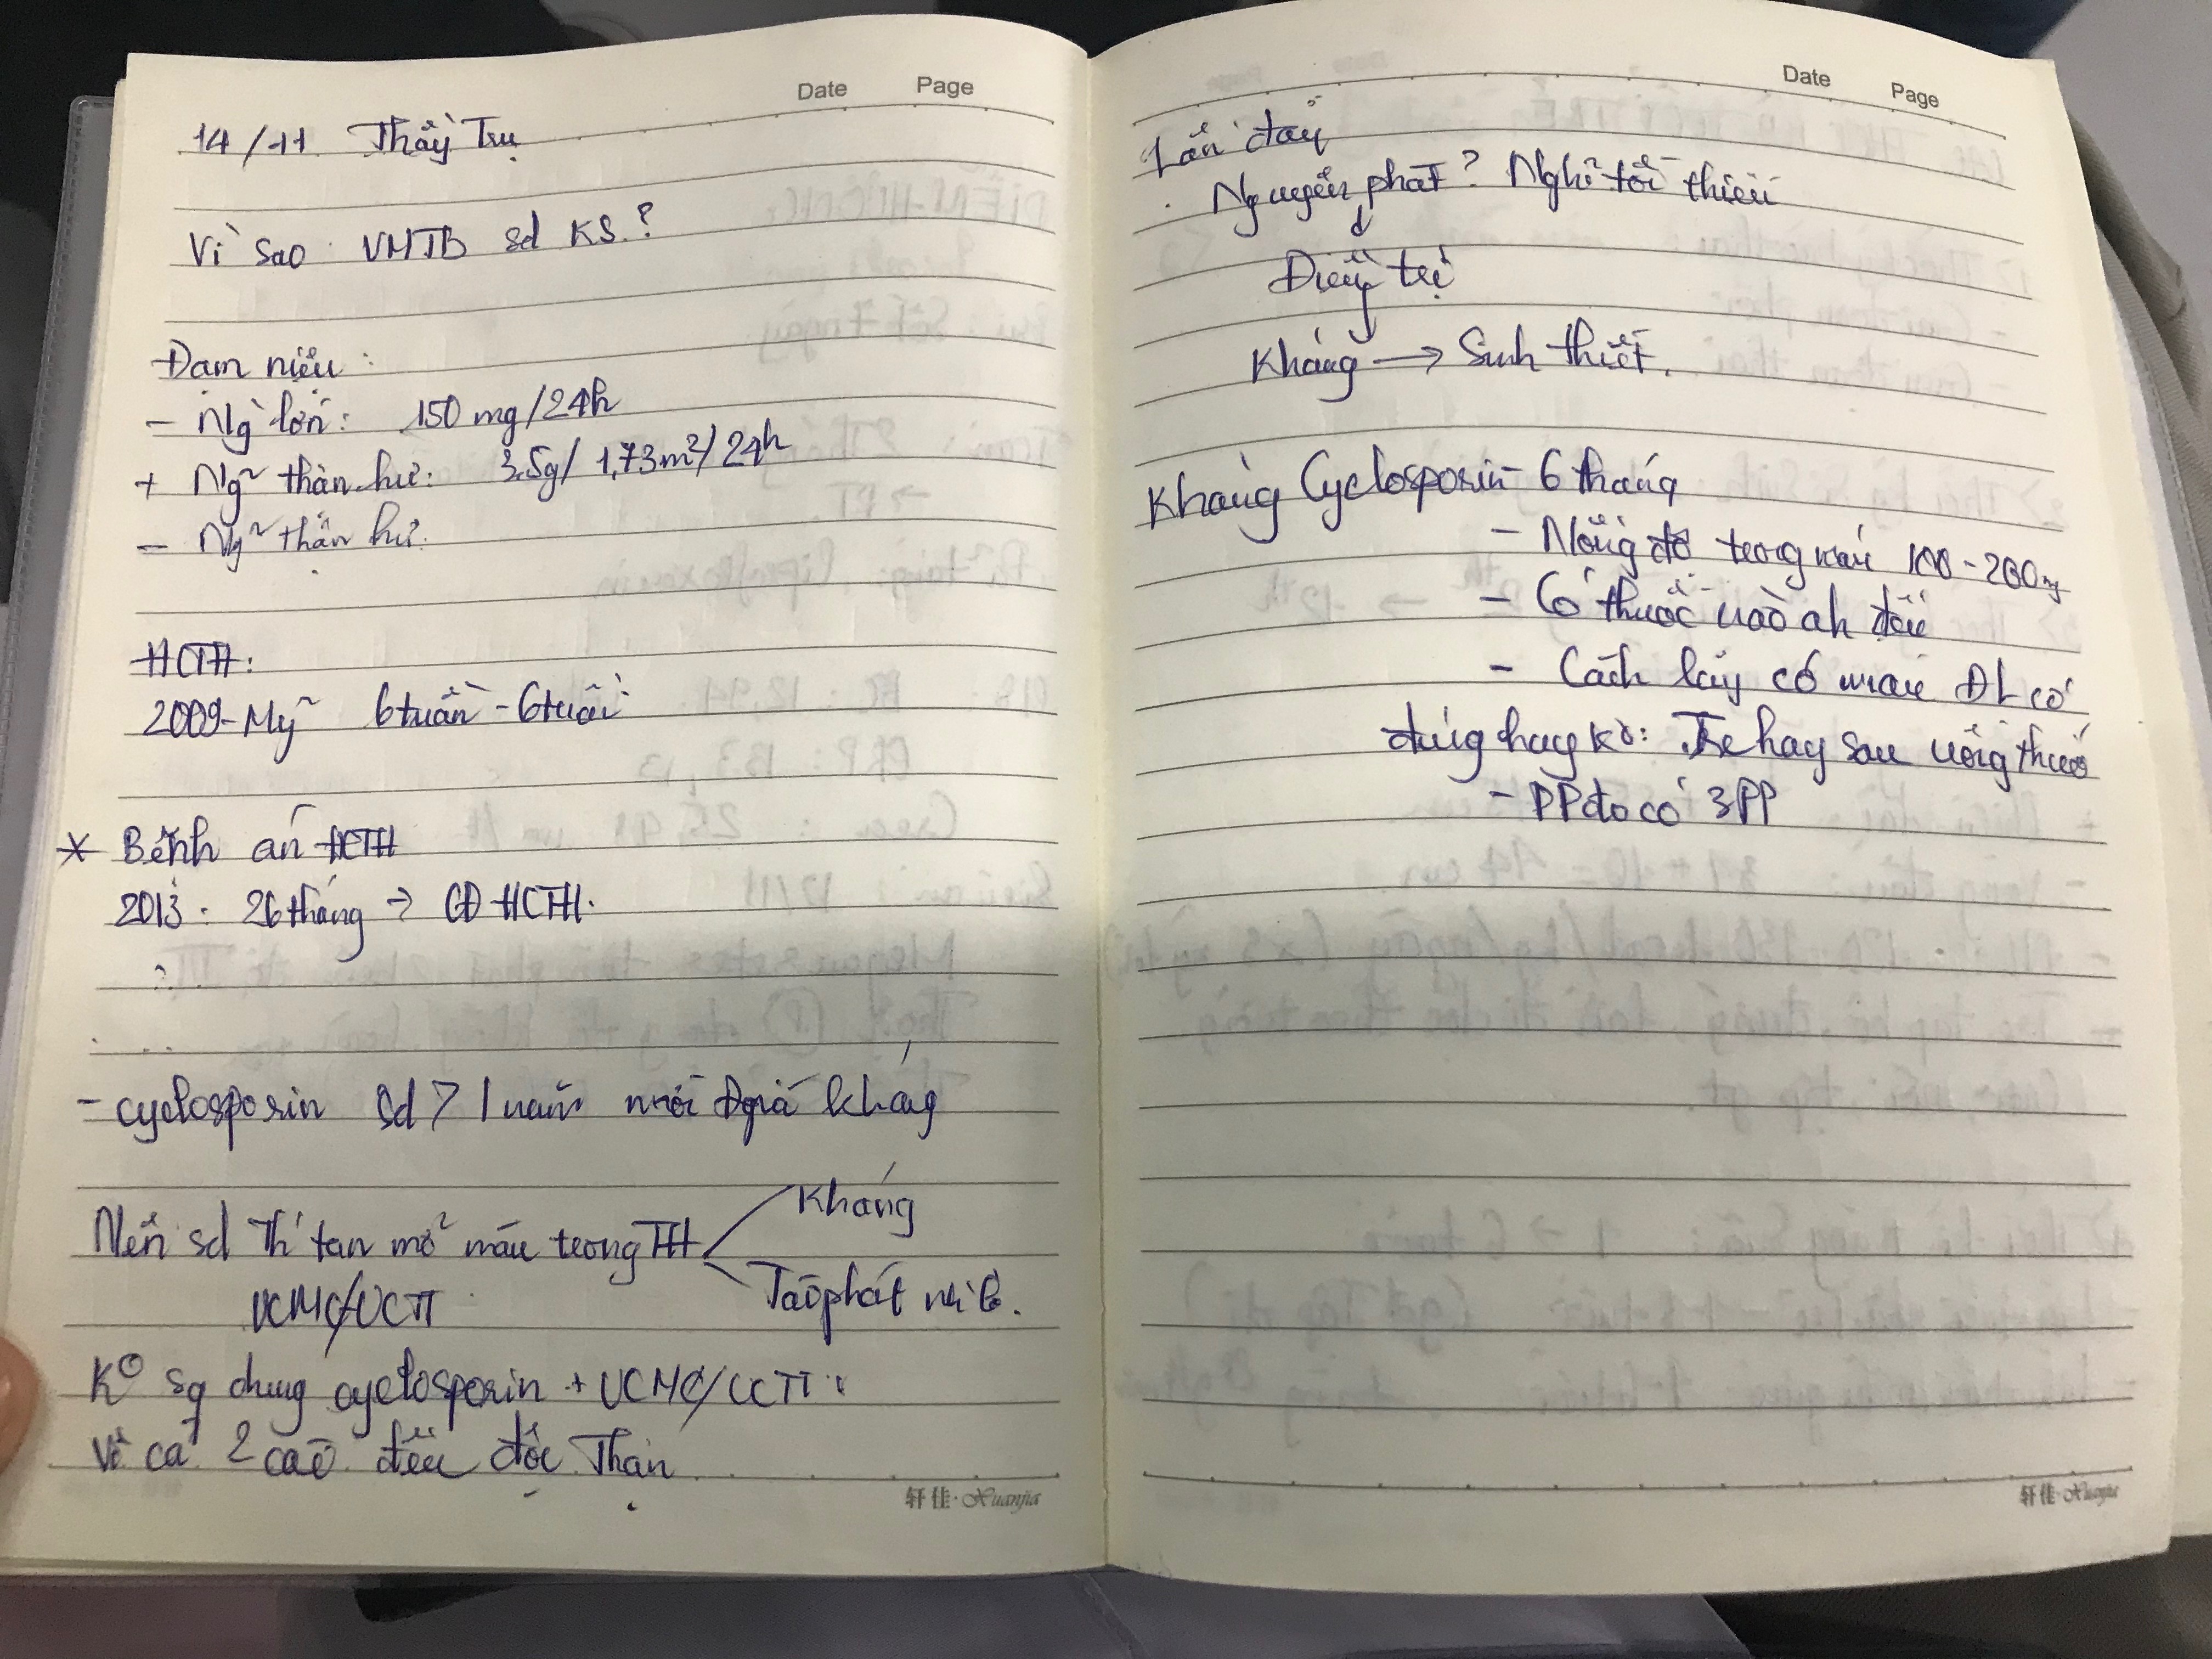 Date Page
14/11 Thầy Trụ
Vì sao VMTB sd KS?
Đạm niệu:
- Ng` lớn: 150 mg/24h
+ Ng~ thận hư: 3,5g/ 1,73m²/24h
- Ng~ thận hư:
HCTH:
2009-Mỹ 6 tuần - 6 tuổi
* Bệnh án HCTH
2013: 26 tháng → CĐ HCTH.
- cyclosporin sd > 1 năm mới Đgiá kháng
Kháng
Nên sd Th' tan mỡ máu trong TH
Tái phát nh` lần.
ƯCMC/ƯCTT
Ko sd chung cyclosporin + ƯCMC/ƯCTT
Vì cả 2 đều độc Thận
轩佳·Xuanjia
Date Page
Lần đầu
. Nguyên phát? Nghĩ tối thiểu
Điều trị
Kháng → Sinh thiết.
Kháng Cyclosporin - 6 tháng
- Nồng độ trong máu 100-200
- Có thuốc nào ah đến
- Cách lấy có máu ĐL có
đúng hay ko: Tre hay sau uống thuốc
- PP đo có 3PP
轩佳·Xuanjia